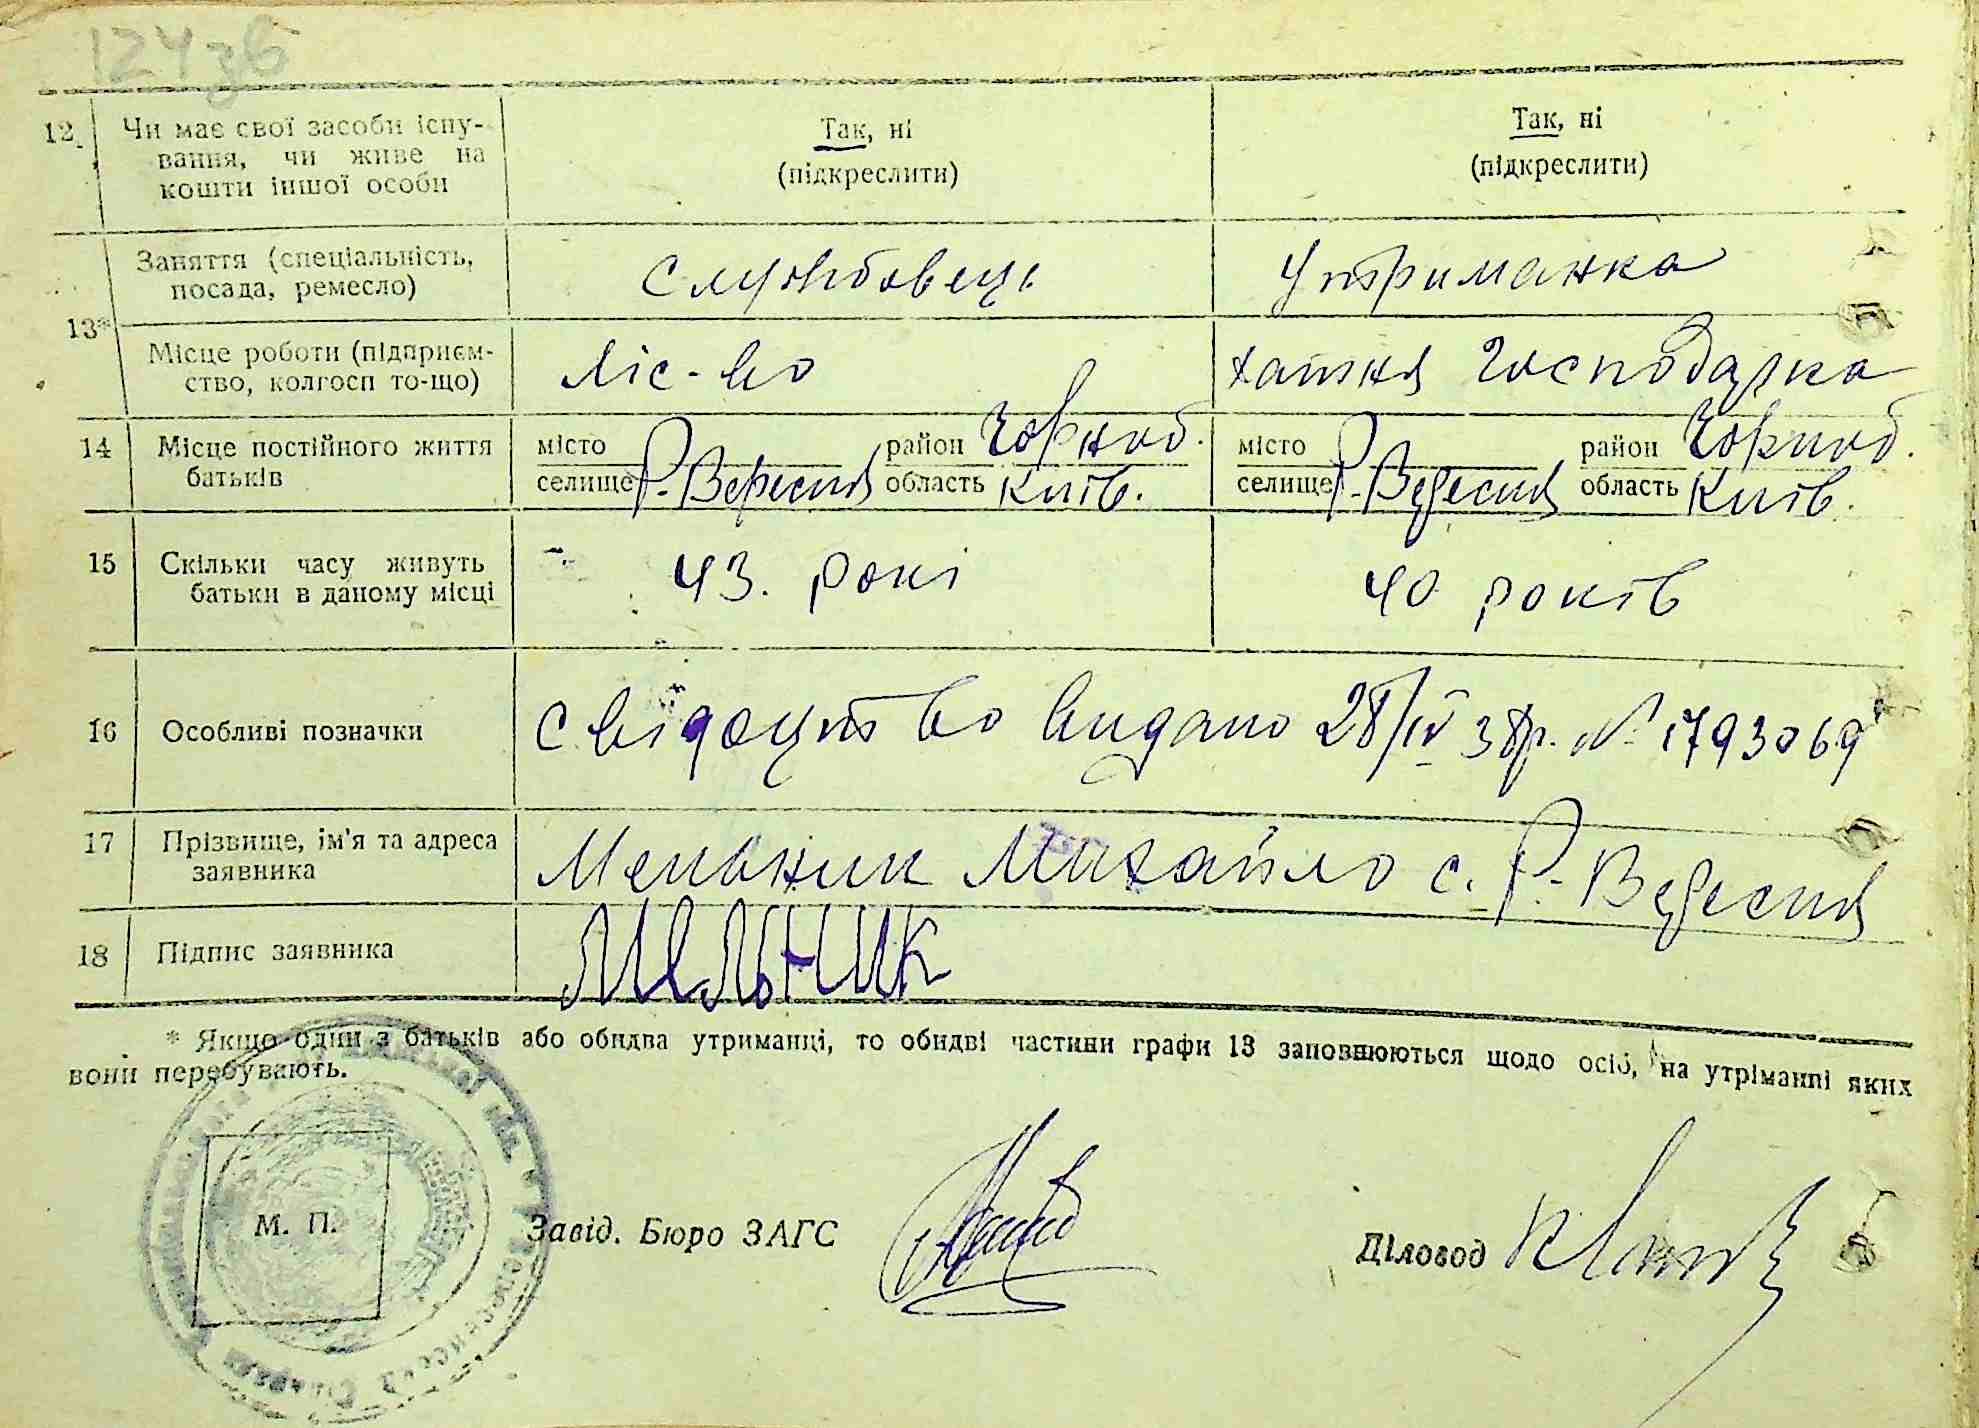 124зв
12. Чи має свої засоби існу-
вання, чи живе на
кошти іншої особи
Так, ні
(підкреслити)
Так, ні
(підкреслити)
13*
Заняття (спеціальність,
посада, ремесло)
службовець
утриманка
Місце роботи (підприєм-
ство, колгосп то-що)
ліс-во
хатня господарка
14 Місце постійного життя
батьків
місто
селище Р. Вересня
район Чорноб.
область Київ.
місто
селище Р. Вересня
район Чорноб.
область Київ.
15 Скільки часу живуть
батьки в даному місці
43. рокі
40 років
16 Особливі позначки
свідоцтво видано 28/IV 38р. № 1793069
17 Прізвище, ім'я та адреса
заявника
Мельник Михайло с. Р. Вересня
18 Підпис заявника
Мельник
* Якщо один з батьків або обидва утриманці, то обидві частини графи 13 заповнюються щодо осіб, на утріманні яких
вони перебувають.
М. П.
Завід. Бюро ЗАГС
Діловод